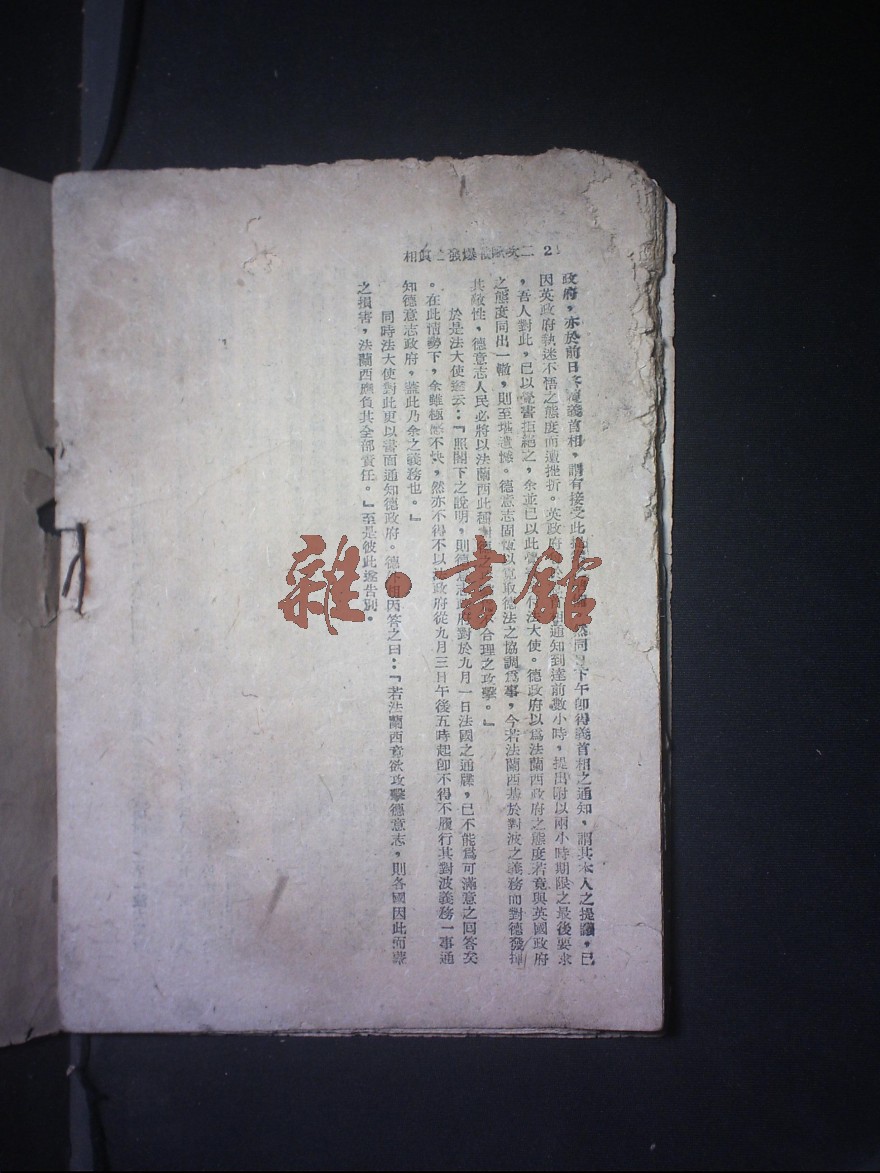 2 二次歐戰爆發之眞相
政府，亦於前日答復義首相，謂有接受此提議之意。然同日下午卽得義首相之通知，謂其本人之提議，已
因英政府執迷不悟之態度而遭挫折。英政府通知到達前數小時，提出附以兩小時期限之最後要求
，吾人對此，已以覺書拒絕之，余並已以此覺書交付法大使。德政府以爲法蘭西政府之態度若竟與英國政府
之態度同出一轍，則至堪遺憾。德意志固恆以覓取德法之協調爲事，今若法蘭西基於對波之義務而對德發揮
其敵性，德意志人民必將以法蘭西此種合理之攻擊。』
於是法大使遂云：『照閣下之說明，則德意志政府對於九月一日法國之通牒，已不能爲可滿意之回答矣
。在此情勢下，余雖極感不快，然亦不得不以法政府從九月三日午後五時起卽不得不履行其對波義務一事通
知德意志政府，蓋此乃余之義務也。』
同時法大使對此更以書面通知德政府。德外相因答之曰：『若法蘭西意欲攻擊德意志，則各國因此而蒙
之損害，法蘭西應負其全部責任。』至是彼此遂告別。
雜·書館